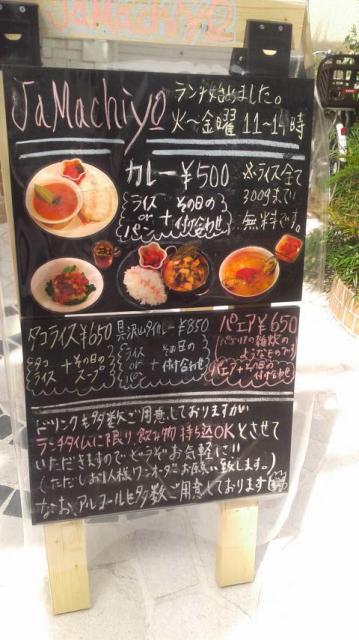 JaMachiyo
JaMachiyo
ランチ始めました。
火～金曜 11～14時
カレー ¥500
ライス or パン + その日の付け合わせ
※ライス全て
300gまで
無料です。
タコライス¥650
タコライス + その日のスープ
具沢山タイカレー ¥850
ライス or パン + その日の付け合わせ
パエア¥650
パエア + その日の付け合わせ
ドリンクも多数ご用意しておりますが
ランチタイムに限り飲み物持ち込OKとさせて
いただきますのでどうぞお気軽に!!
(ただしお1人様ワンオーダーお願い致します。)
なお、アルコールも多数ご用意しております